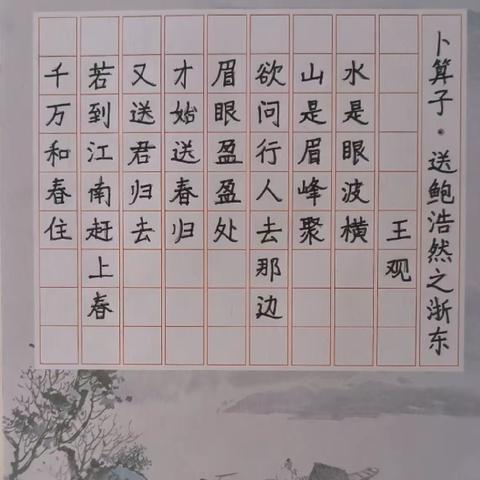 卜算子·送鲍浩然之浙东
王观
水是眼波横
山是眉峰聚
欲问行人去那边
眉眼盈盈处
才始送春归
又送君归去
若到江南赶上春
千万和春住